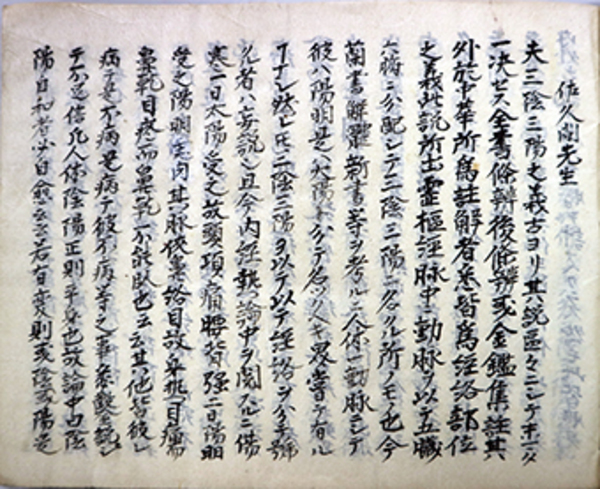 佐久間先生
夫三陰三陽之義古ヨリ其説區々ニシテ
一決セス金書條辨後條辨或金鑑集註其
外於中華所為註解者悉皆為經絡部位
之義此説所出霊樞經脉中動脉ヲ以テ五臓
六府ニ分配シテ三陰三陽ニ名クル所ノモノ也今
蘭書解體新書等ヲ考ルニ人体一動脉ニシテ
彼ハ陽明是ハ太陽ト分テ名ツクヘキ
ナシ然レ圧三陰三陽ヲ以テ以テ經絡ヲ分テ號
者ハ妄説也且今内經熱論中ヲ閲スルニ傷
寒一日太陽受之故頭項痛腰背强二日陽明
受之陽明主肉其脉俠鼻絡目故身熱目痛
鼻乾目疼而鼻乾不能臥也云云其他皆彼
病テ是不病是病テ彼不病等之事
不足信凡人体陰陽正則平身也故論中曰陰
陽自和者必自愈云云若有變則或陰或陽